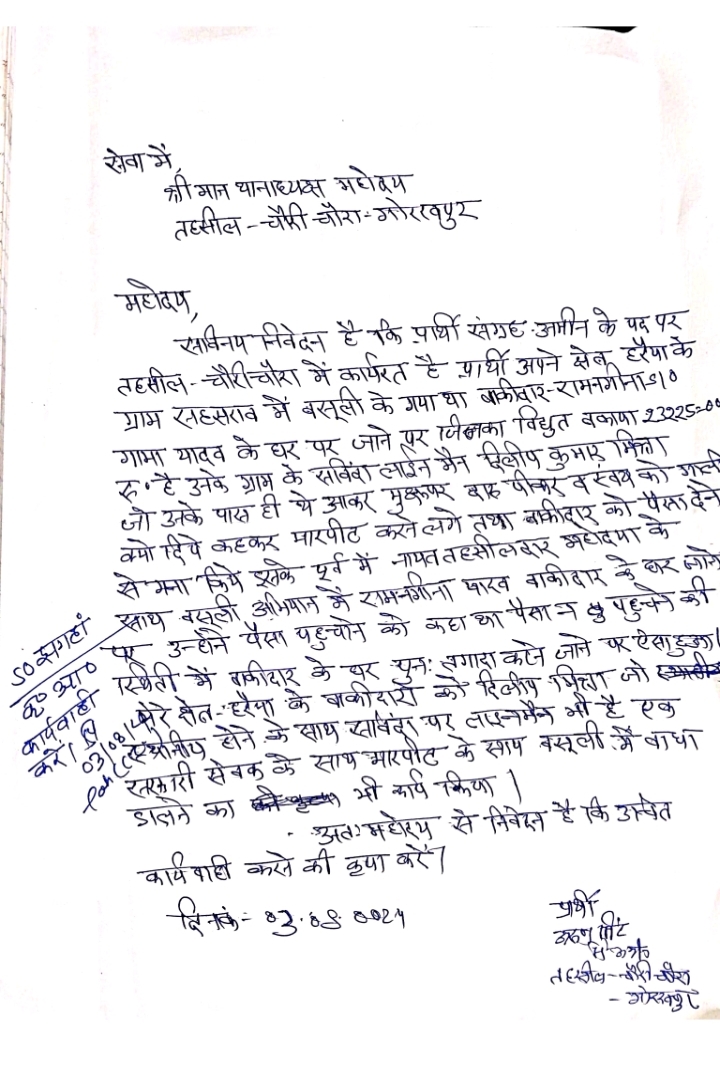 सेवा में,
श्री मान थानाध्यक्ष महोदय
तहसील-चौरी चौरा-गोरखपुर
महोदय,
सविनय निवेदन है कि प्रार्थी संग्रह अमीन के पद पर
तहसील-चौरीचौरा में कार्यरत है प्रार्थी अपने क्षेत्र हरैया के
ग्राम सहसराव में वसूली के गया था बाकीदार-रामनगीना S/O
गामा यादव के घर पर जाने पर जिनका विद्युत बकाया 23225=00
रु॰ है उनके ग्राम के संविदा लाईन मैन दिलीप कुमार मिश्रा
जो उनके पास ही थे आकर मुझपर दारु पीकर व स्वयं को गाली
क्यों दिये कहकर मारपीट करने लगे तथा बाकीदार को पैसा देने
से मना किये इसके पूर्व में नायब तहसीलदार महोदया के
साथ वसूली अभियान में रामनगीना यादव बाकीदार के घर जाने
पर उन्होंने पैसा पहुचाने को कहा था पैसा न पहुचने की
स्थिती में बाकीदार के घर पुनः तगादा करने जाने पर ऐसा हुआ।
मेरे क्षेत्र-हरैया के बाकीदारों को दिलीप मिश्रा जो
स्थानीय होने के साथ संविदा पर लाइनमैन भी है एक
सरकारी सेवक के साथ मारपीट के साथ वसूली में बाधा
डालने का भी कार्य किया।
अतः महोदय से निवेदन है कि उचित
कार्यवाही करने की कृपा करें।
दिनांक- 03.08.2024
प्रार्थी
तहसील-चौरी-चौरा
-गोरखपुर
SO झगहां
कृ॰ आ॰
कार्यवाही
करें।
03/08/